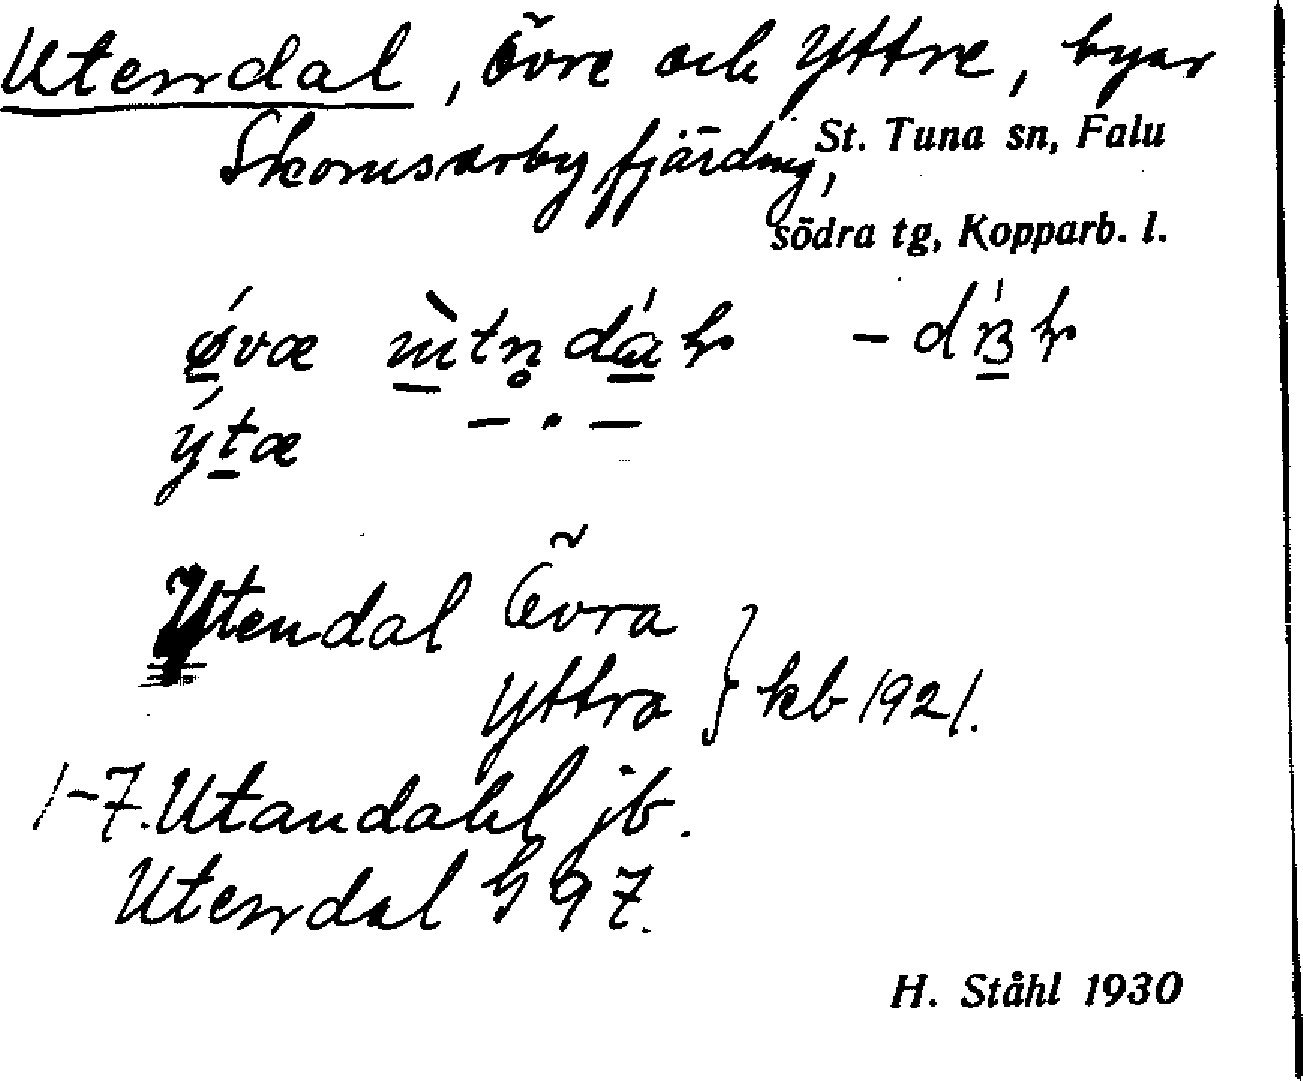 Utendal, Övre och Yttre, byar
Skomsarby fjärding, St. Tuna sn, Falu
södra tg, Kopparb. l.
Utendal Övra
Yttra } kb 1921.
1-7. Utandahl jb.
Utendal G 97.
H. Ståhl 1930